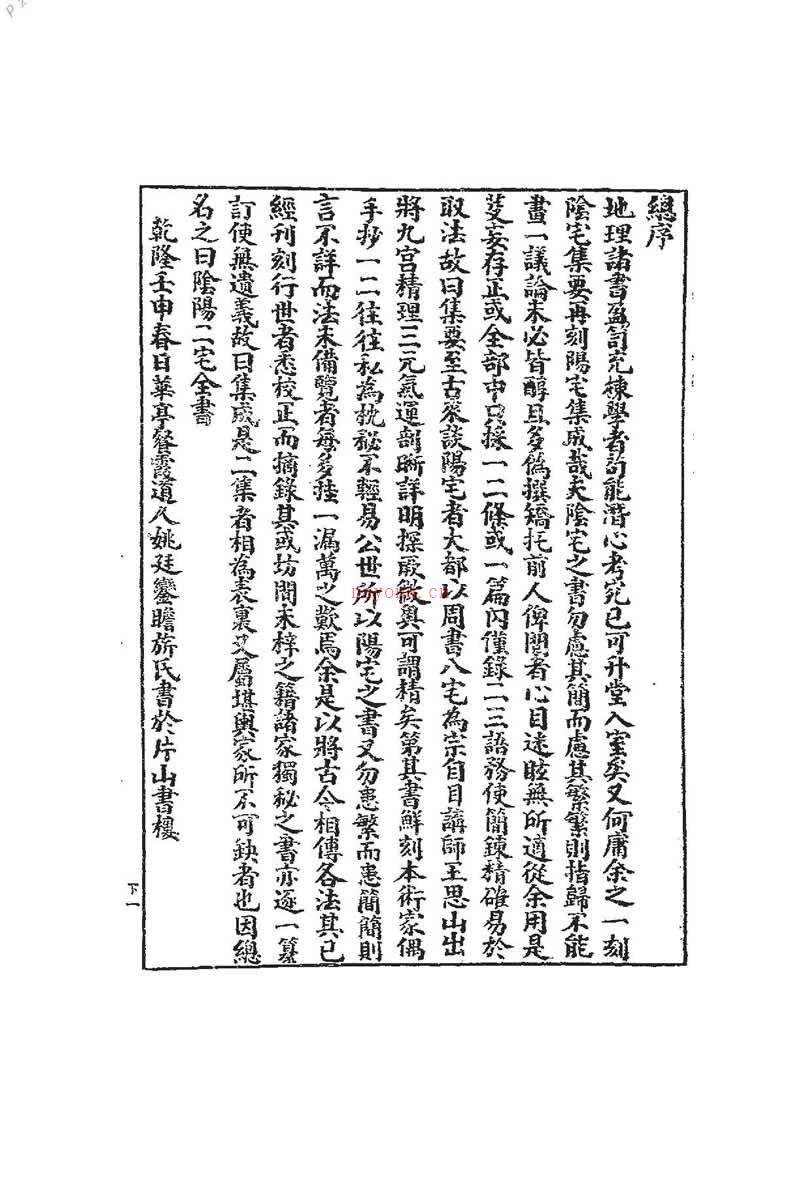 總序
地理諸書盈笥充棟學者苟能潛心考究已可升堂入室矣又何庸余之一刻
陰宅集要再刻陽宅集成哉夫陰宅之書勿慮其簡而慮其繁繁則指歸不能
畫一議論未必皆醇且多偽撰矯托前人俾閱者心目迷眩無所適從余用是
芟妄存正或全部中只採一二條或一篇內僅錄二三語務使簡鍊精確易於
取法故曰集要至古來談陽宅者大都以周書八宅為宗自目講師王思山出
將九宮精理三元氣運剖晰詳明探厥微奧可謂精矣第其書鮮刻本術家偶
手抄一二往往私為枕秘不輕易公世所以陽宅之書又勿患繁而患簡簡則
言不詳而法未備覽者每多挂一漏萬之歎焉余是以將古今相傳各法其已
經刊刻行世者悉校正而摘錄其或坊間未梓之籍諸家獨秘之書亦逐一纂
訂使無遺義故曰集成是二集者相為表裏又屬堪輿家所不可缺者也因總
名之曰陰陽二宅全書
乾隆壬申春日華亭餐霞道人姚廷鑾瞻旂氏書於片山書樓
下一